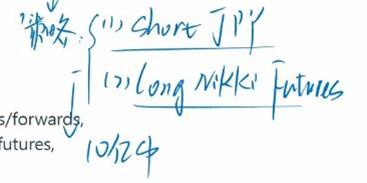 策略: (1) short JPY
(2) Long Nikki Futures
s/forwards,
futures,
10亿中